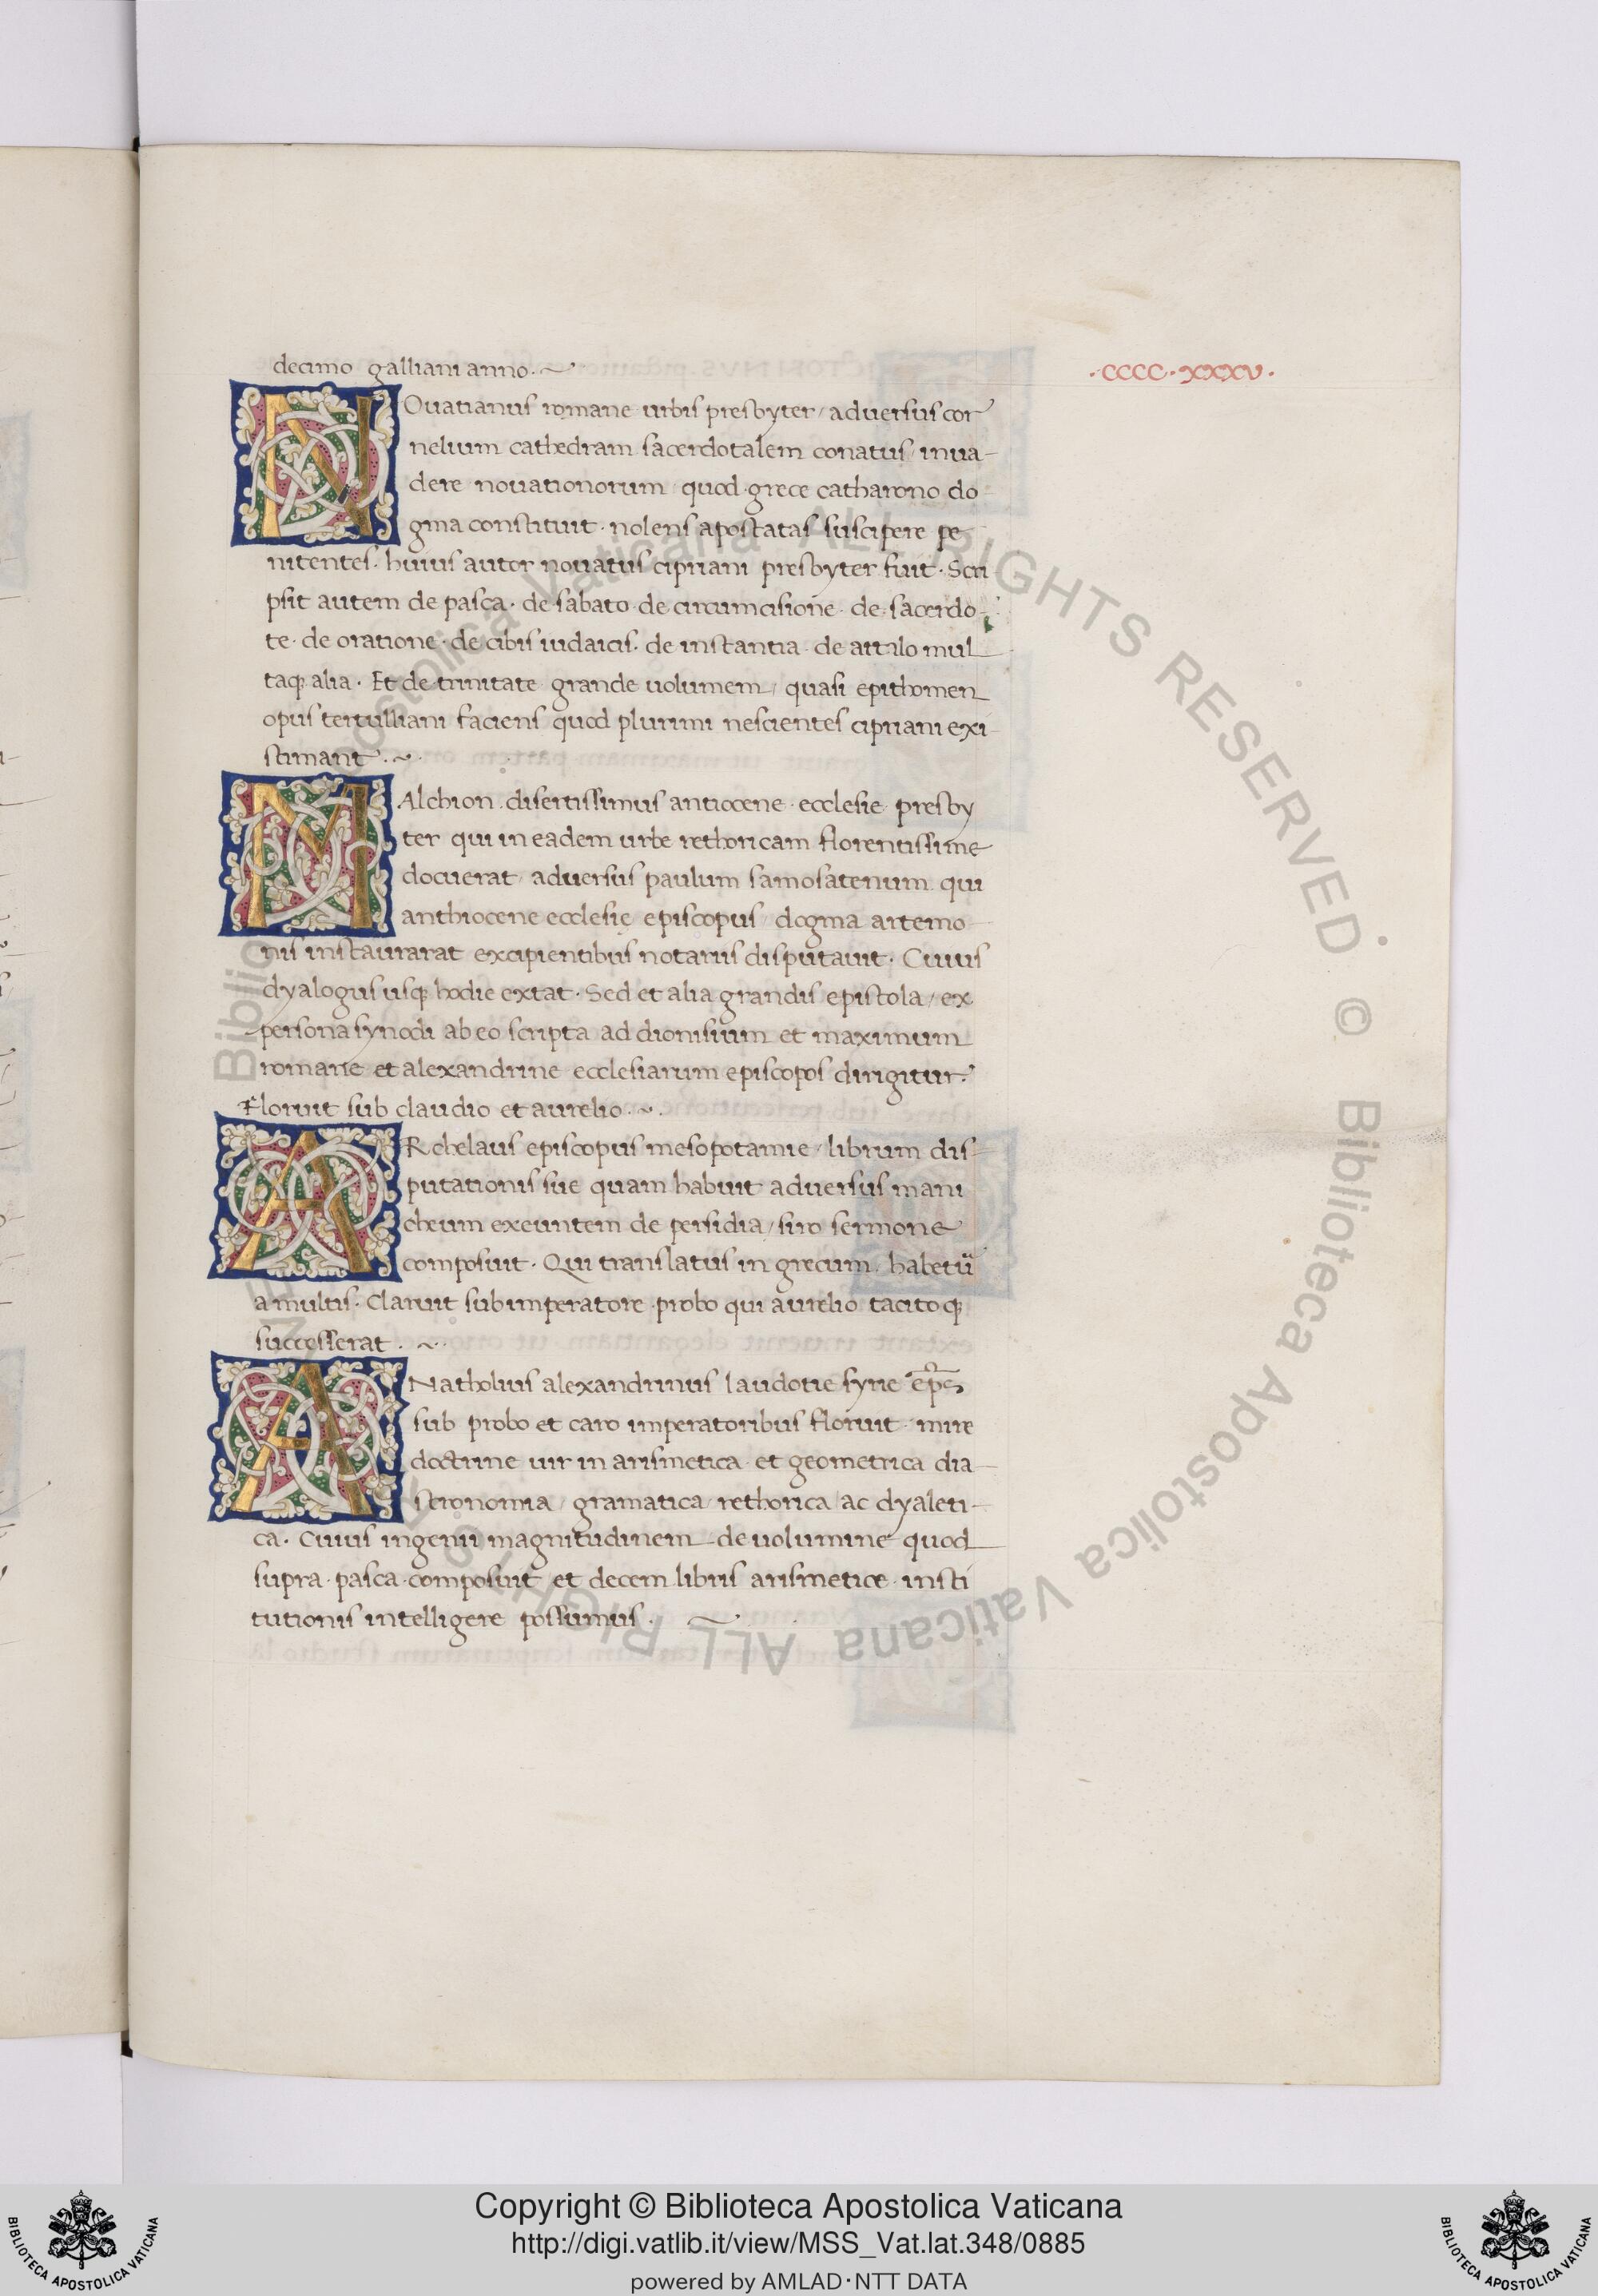 decimo galliani anno.
·CCCC·XXXV·
NOuatianus romane urbis presbyter/ aduersus cor
nelium cathedram sacerdotalem conatus inua-
dere nouationorum quod grece catharono do-
gma constituit. nolens apostatas suscipere pe
nitentes. huius autor nouatus cipriani presbyter fuit. Scri
psit autem de pasca. de sabato de circumcisione de sacerdo-
te. de oratione. de cibis iudaicis. de instantia de attalo mul
taq; alia. Et de trinitate grande uolumem/ quasi epithomen
opus tertulliani faciens quod plurimi nescientes cipriani exi-
stimant.
MAlchion disertissimus antiocene ecclesie presby
ter qui in eadem urbe rethoricam florentissime
docuerat aduersus paulum samosatenum qui
anthiocene ecclesie episcopus dogma artemo-
nis instaurarat excipientibus notariis disputauit. Cuius
dyalogus usq; hodie extat. Sed et alia grandis epistola/ ex
persona synodi ab eo scripta ad dionisium et maximum
romane et alexandrine ecclesiarum episcopos dirigitur.
Floruit sub claudio et aurelio.
ARchelaus episcopus mesopotamie/ librum dis-
putationis sue quam habuit aduersus mani
cheum exeuntem de persidia/ siro sermone
composuit. Qui translatus in grecum habetur
a multis. Claruit sub imperatore probo qui aurelio tacitoq;
successerat.
ANatholius alexandrinus laudotie syrie ep̄s
sub probo et caro imperatoribus floruit mire
doctrine uir in arismetica et geometrica dia-
stronomia/ gramatica/ rethorica/ ac dyaleti-
ca. Cuius ingenii magnitudinem de uolumine quod
supra pasca composuit et decem libris arismetice insti
tutionis intelligere possumus.
Biblioteca Apostolica Vaticana ALL RIGHTS RESERVED © Biblioteca Apostolica Vaticana ALL RIGHTS
Copyright © Biblioteca Apostolica Vaticana
http://digi.vatlib.it/view/MSS_Vat.lat.348/0885
powered by AMLAD·NTT DATA
BIBLIOTECA APOSTOLICA VATICANA
BIBLIOTECA APOSTOLICA VATICANA